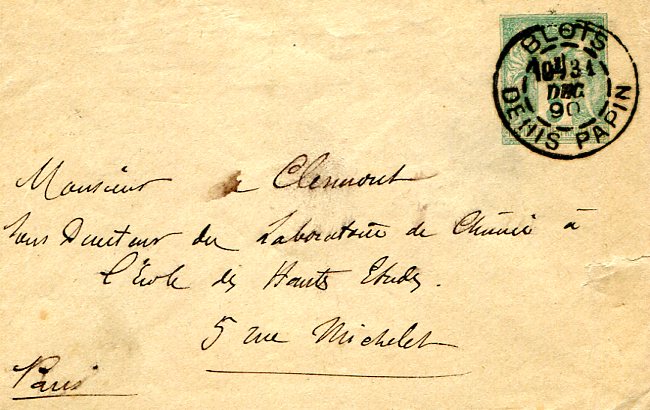 BLOIS
10E 31
DEC
90
DENIS PAPIN
Monsieur de Clermont
Sous Directeur du Laboratoire de Chimie à
l'École des Hauts Etudes.
5 rue Michelet
Paris